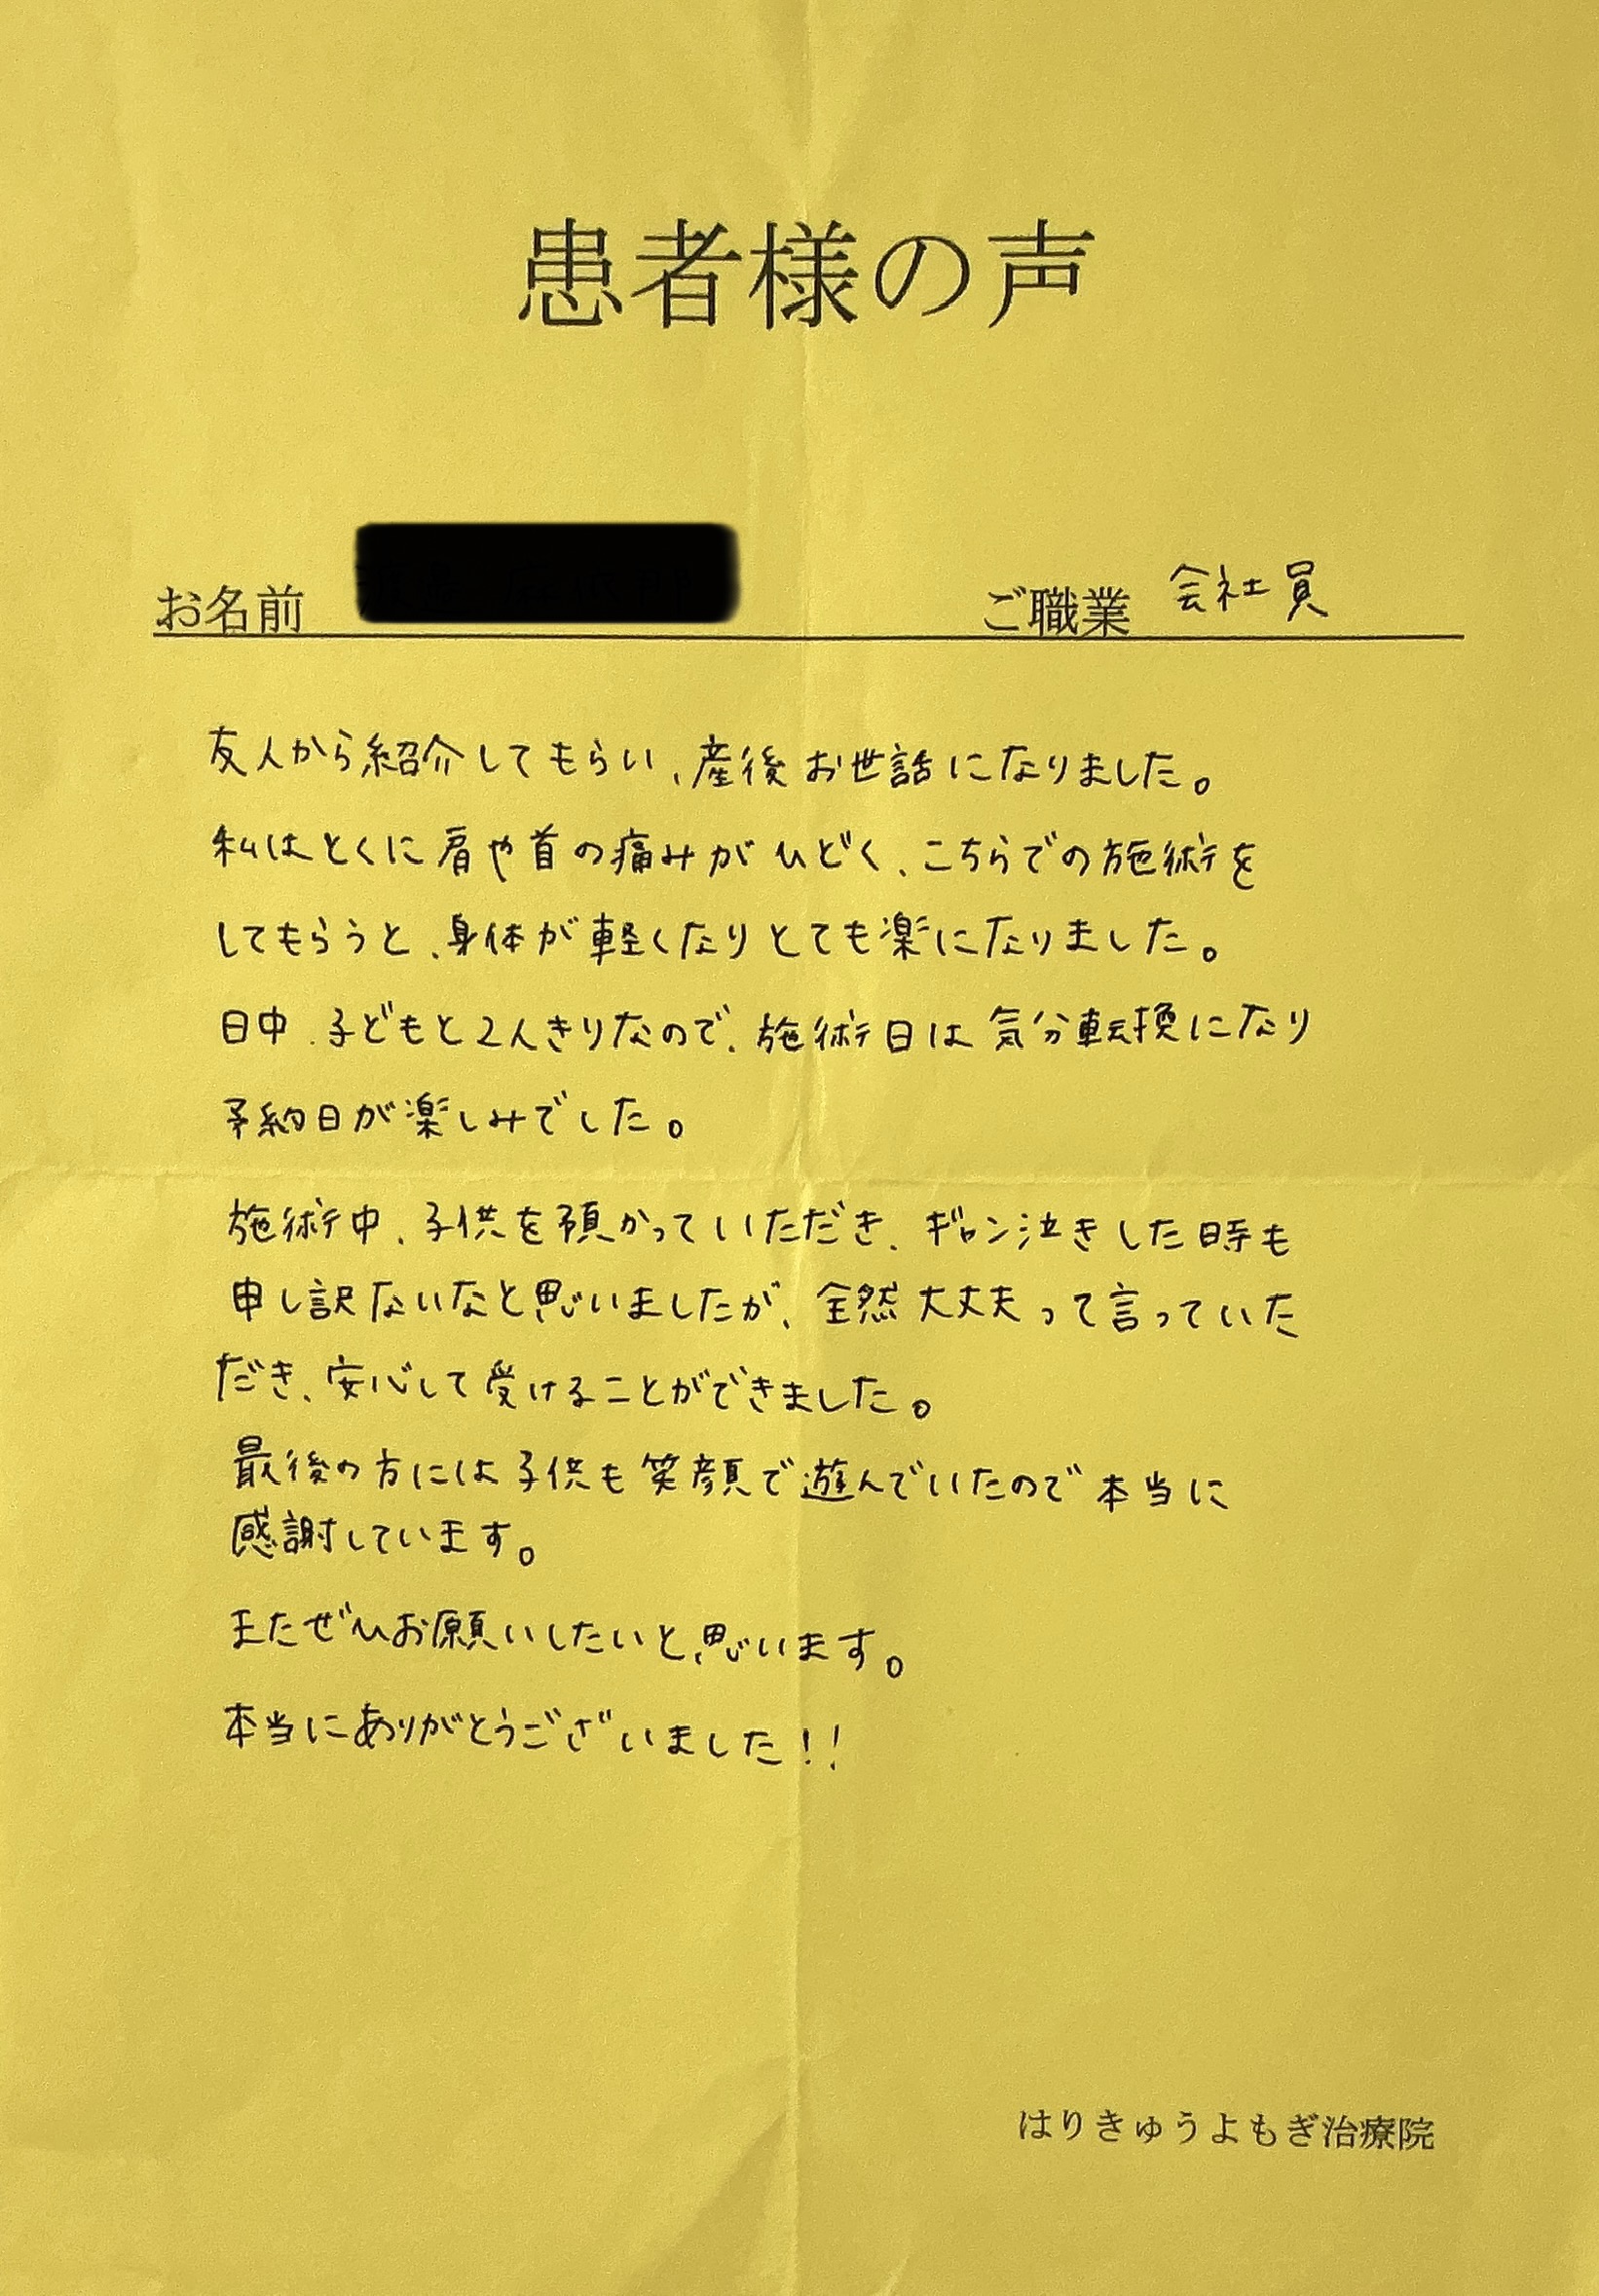 患者様の声
お名前 ご職業 会社員
友人から紹介してもらい、産後お世話になりました。
私はとくに肩や首の痛みがひどく、こちらでの施術を
してもらうと、身体が軽くなりとても楽になりました。
日中、子どもと2人きりなので、施術日は気分転換になり
予約日が楽しみでした。
施術中、子供を預かっていただき、ギャン泣きした時も
申し訳ないなと思いましたが、全然大丈夫って言っていた
だき、安心して受けることができました。
最後の方には子供も笑顔で遊んでいたので本当に
感謝しています。
またぜひお願いしたいと思います。
本当にありがとうございました!!
はりきゅうよもぎ治療院